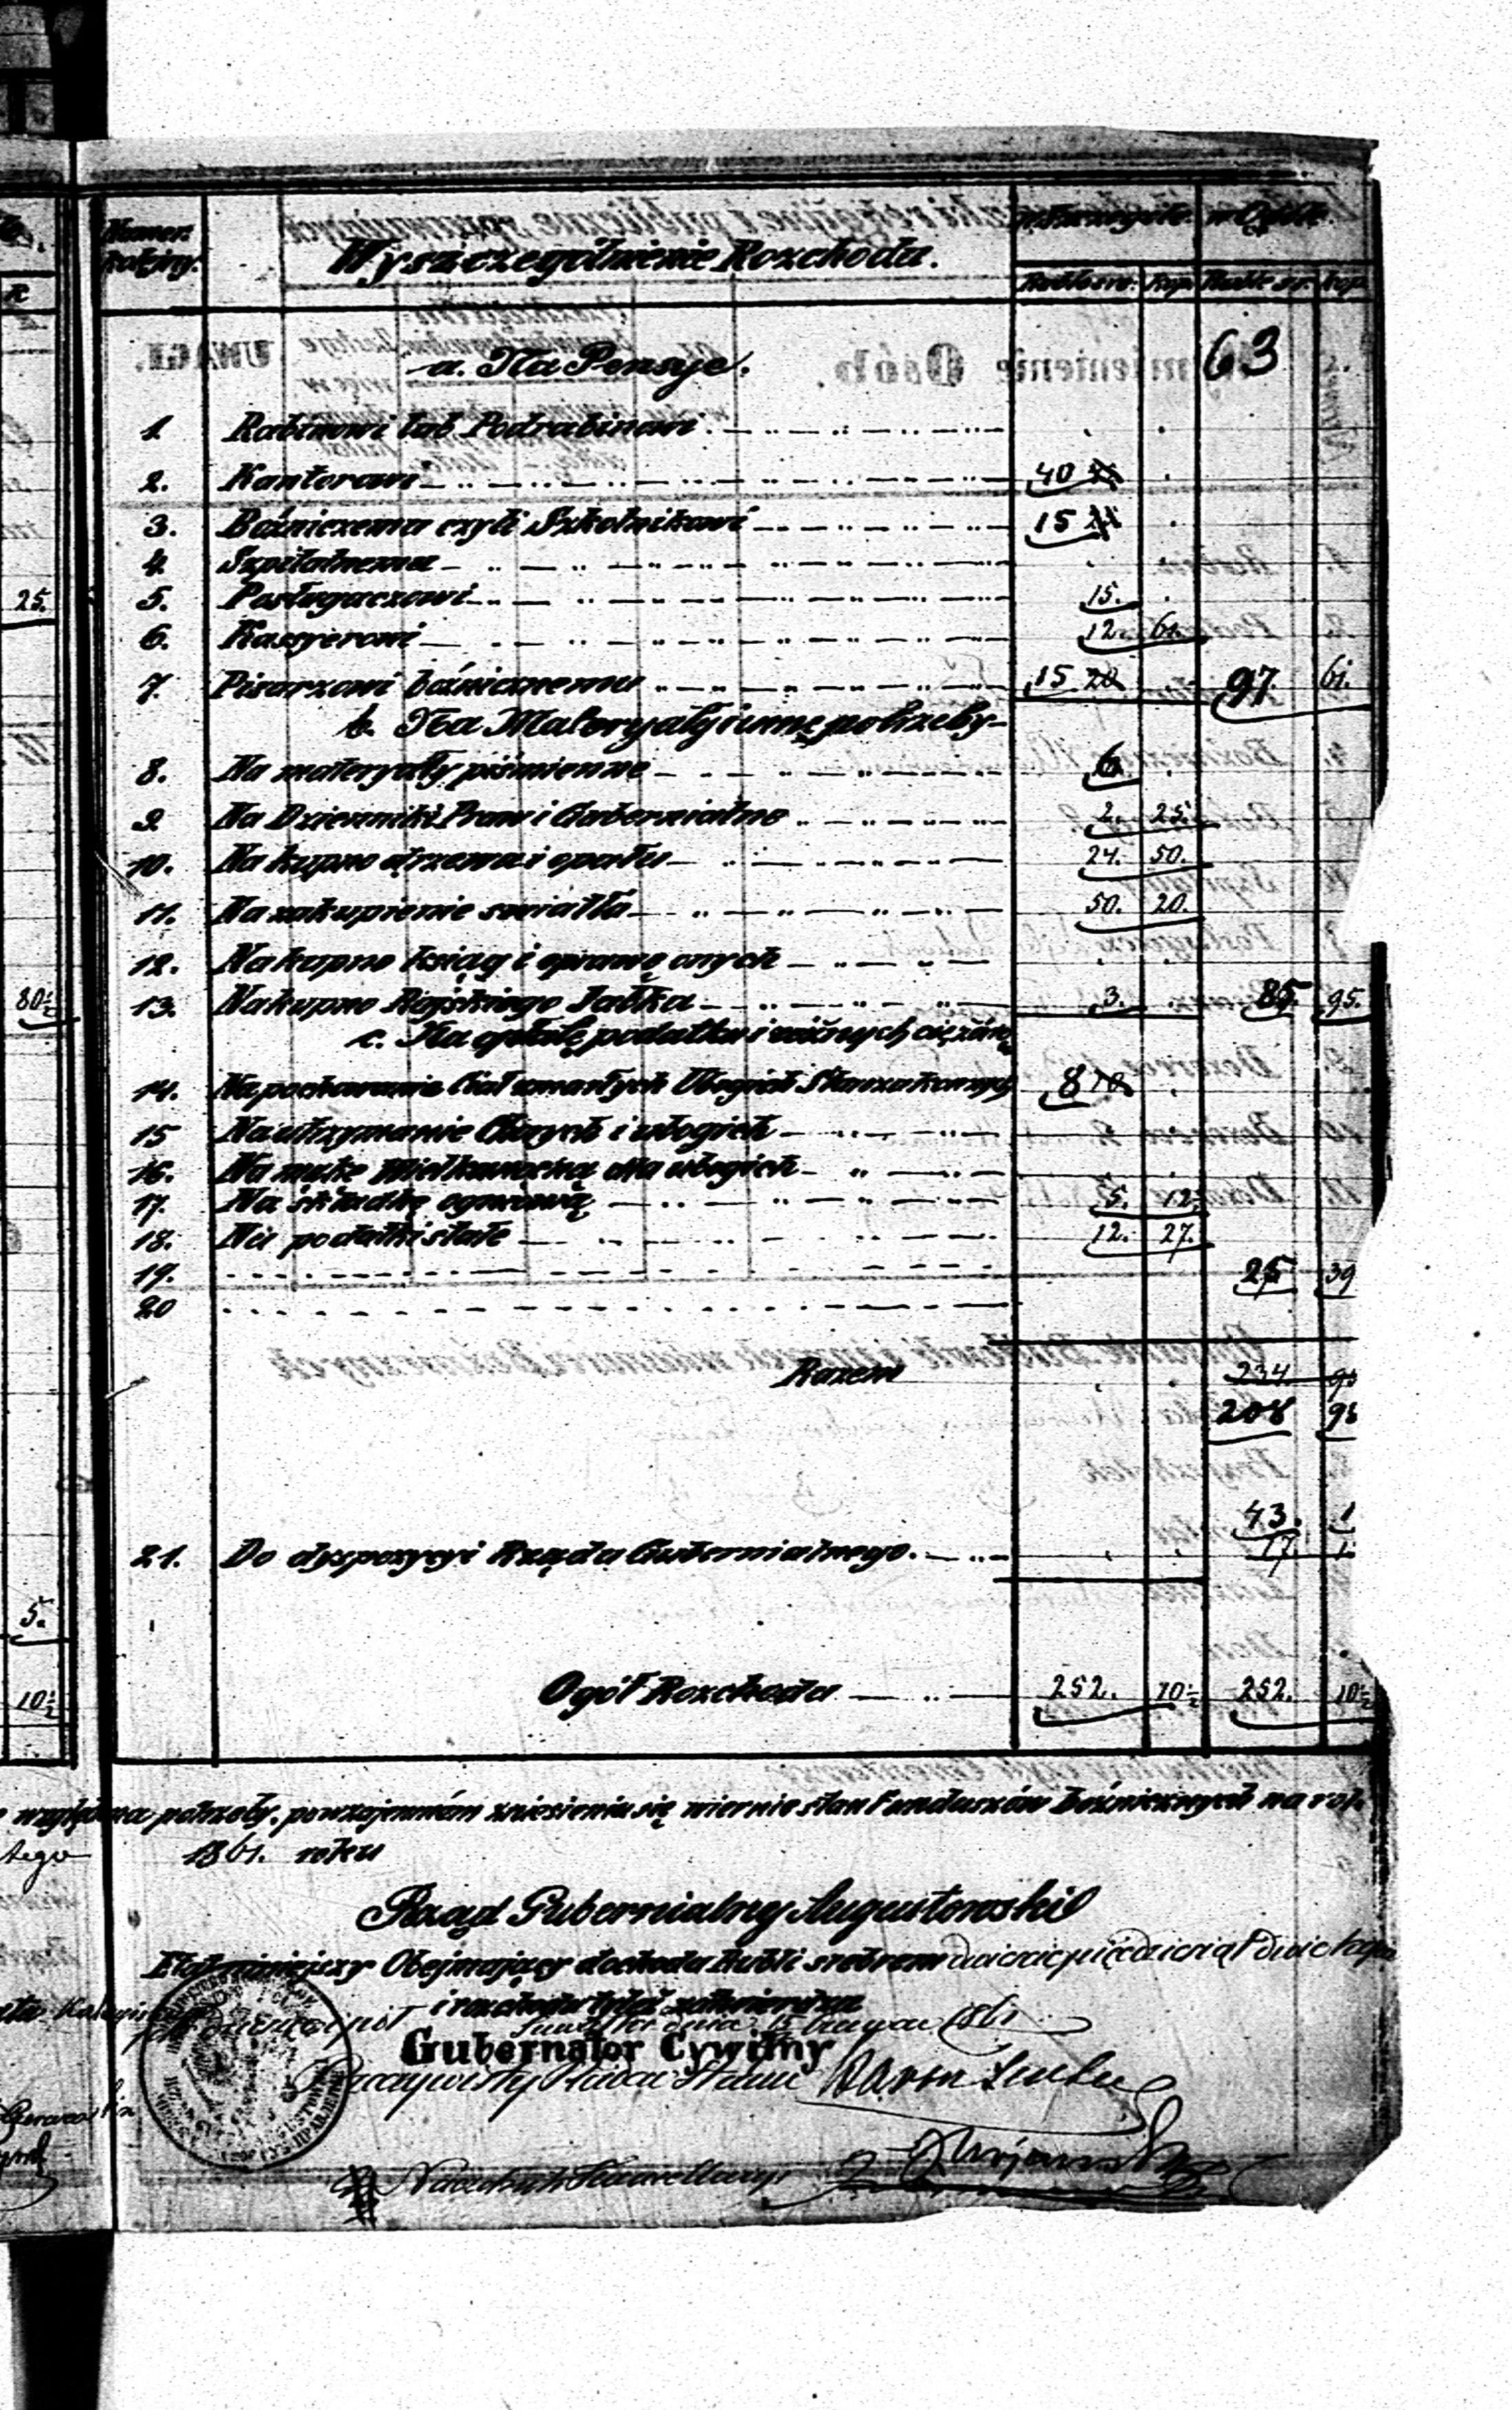 Numer kolejny. Wyszczególnienie Rozchodu. w Szczególe. w Ogóle.
Ruble sr. Kop. Ruble sr. kop
63
a. Na Pensye.
1. Rabinowi lub Podrabinowi
2. Kantorowi 40
3. Bóżniczemu czyli Szkolnikowi 15
4. Szpitalnemu
5. Posługaczowi 15.
6. Kassyerowi 12. 61.
7. Pisarzowi bóźnicznemu 15 20 97. 61.
b. Na Materyały i inne potrzeby
8. Na materyały piśmienne 6.
9. Na Dzienniki Praw i Gubernialne 2. 25.
10. Na kupno drzewa i opału 24. 50.
11. Na zakupienie swiatła 50. 20.
12. Na kupno ksiąg i oprawę onych
13. Na kupno Rajskiego Jabłka 3. 85. 95.
c. Na opłatę podatku i różnych ciężarów
14. Na pochowanie Ciał umarłych Ubogich Starozakonnych 8 10
15 Na utrzymanie Chorych i ubogich
16. Na mąkę Wielkanocną dla ubogich
17. Na składkę ogniową 5. 12.
18. Na podatki stałe 12. 27.
19. 25 39
20
Razem 234. 95
208 95
43. 1
21. Do dyspozycyi Rządu Gubernialnego. 17. 1.
Ogół Rozchodu 252. 10½ 252. 10½
25.
80½
5.
10½
względna potrzeby, powzajemném zniesieniu się wiernie stan Funduszów bóźnicznych na rok
tego 1861. roku
Rząd Gubernialny Augustowski
Etat niniejszy Obejmujący dochodu Rubli srebrem dwieście pięćdziesiąt dwie kopie
i rozchodu tyleż zatwierdza
dnia 15 1861
Gubernator Cywilny
Rzeczywisty Radca Stanu
Naczelnik Kancellaryi